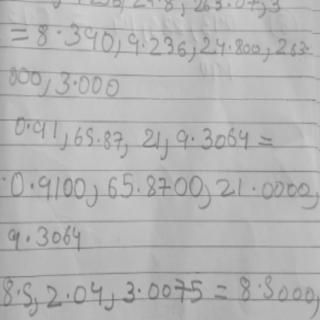 24.8, 263.07, 3
= 8.340, 9.236, 24.800, 263.
000, 3.000
0.91, 65.87, 21, 9.3064 =
0.9100, 65.8700, 21.0000,
9.3064
8.5, 2.04, 3.0075 = 8.5000,